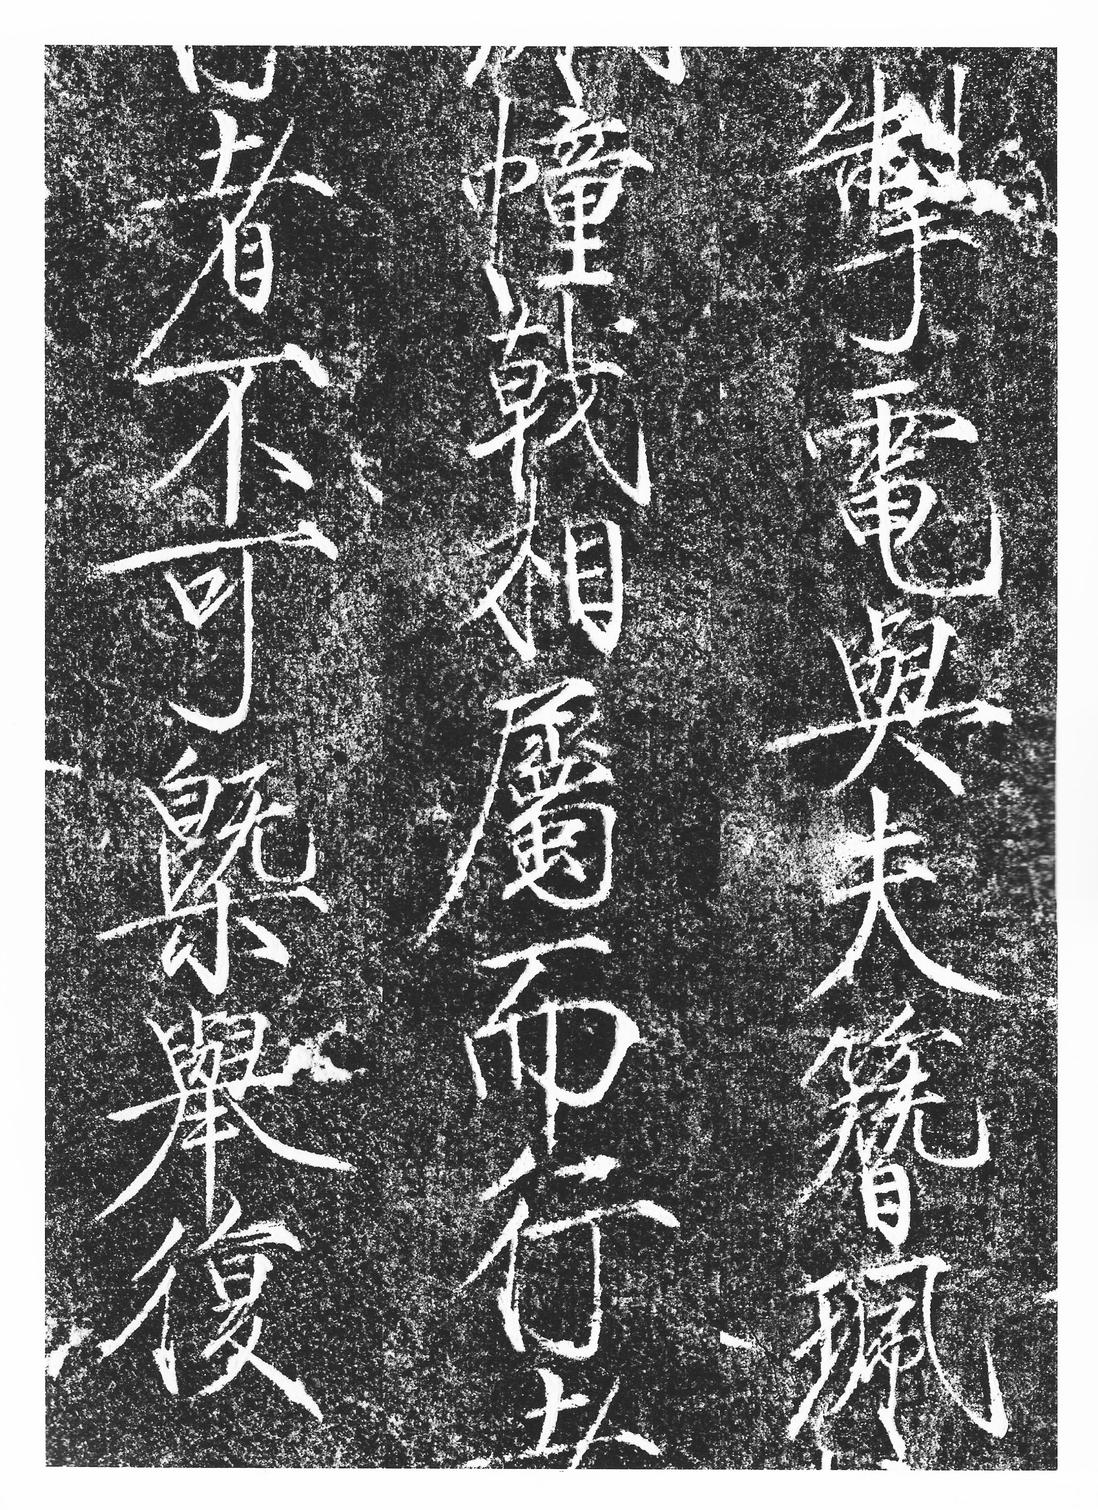 掣電與夫簪珮
幢戟相屬而行者
者不可槩舉復